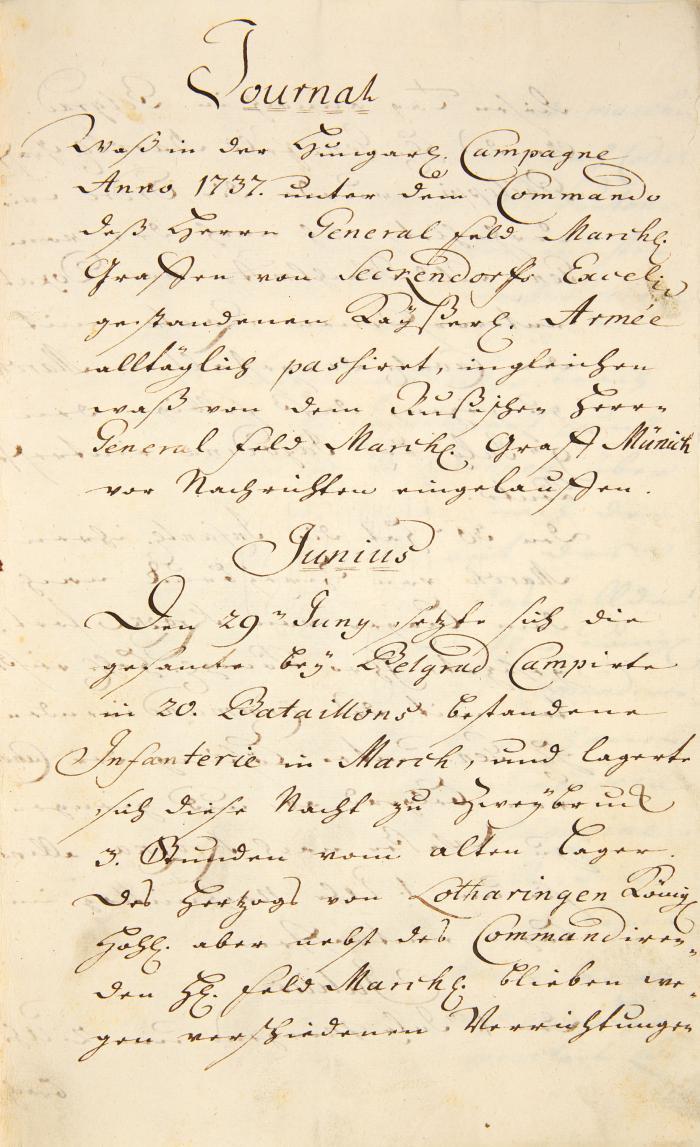 Journal
Waß in der Hungarl. Campagne
Anno 1737. unter dem Commando
deß Herrn General Feld Marchl.
Graffen von Seckendorffs Excell
gestandenen Kayßerl. Armée
alltäglich passiret, ingleichen
waß von dem Rußischen Herrn
General Feld Marchl. Graff Münich
vor Nachrichten eingelauffen.
Junius
Den 29n Juny setzte sich die
gesamte bey Belgrad Campirte
in 20. Bataillons bestandene
Infanterie in March, und lagerte
sich diese Nacht zu Zweybruck
3. Stunden vom alten Lager.
Des Hertzogs von Lotharingen Königl
Hohl. aber nebst des Commandiren-
den Hl. Feld Marchl. blieben we-
gen verschiedenen Verrichtungen